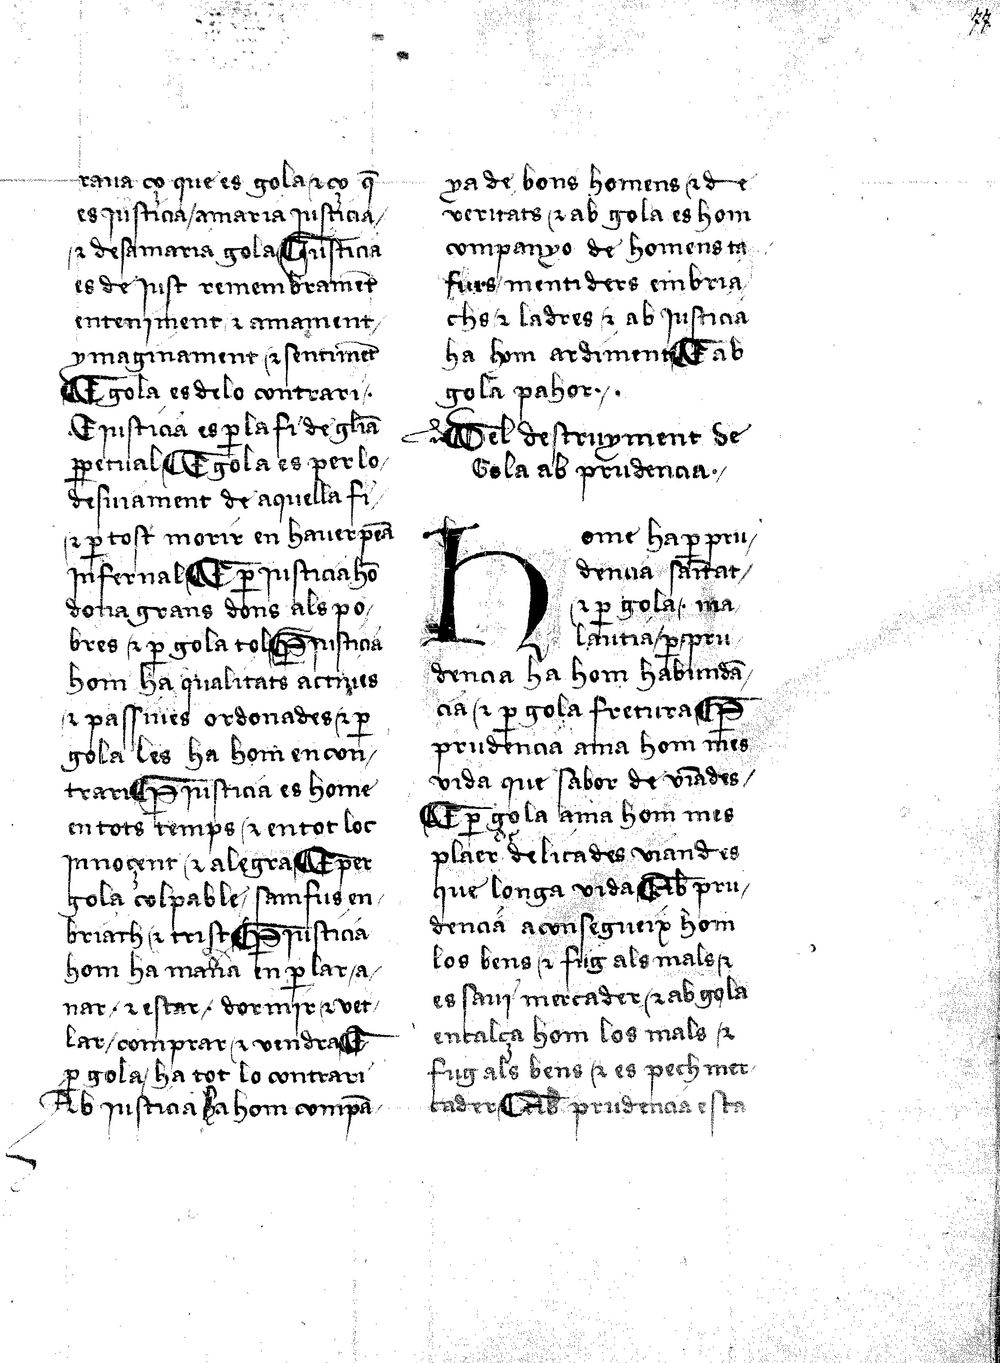 77
raua ço que es gola / ⁊ ço q̄
es justicia / amaria justicia /
⁊ desamaria gola ¶ Justicia
es de just remembramēt
enteniment ⁊ amament /
ymaginament ⁊ sentimēt
¶ E gola es delo contrari /.
E justicia es ꝑ la fi de glīa
ꝑpetual ¶ E gola es per lo /
desuiament de aquella fi /
⁊ ꝑ tost morir en hauer peā
infernal ¶ E ꝑ justicia hō
dona grans dons als po /
bres ⁊ ꝑ gola tol ¶ Ꝑ justicia
hom ha qualitats actiues
⁊ passiues ordonades / ⁊ ꝑ
gola les ha hom en con /
trari ¶ Ꝑ justicia es home
en tots temps / ⁊ en tot loc
innoçent / ⁊ alegra ¶ E per
gola colpable / samfus en /
briach / ⁊ trist ¶ Ꝑ justicia
hom ha mañā en ꝑlar / a /
nar / ⁊ estar / dormir / ⁊ vet /
lar / comprar / ⁊ vendra ¶ E
ꝑ gola / ha tot lo contrari
Ab justicia ha hom compā
ya de bons homens / ⁊ d e
veritats / ⁊ ab gola es hom
companyo de homens ta
furs / mentiders embria /
chs / ⁊ ladres / ⁊ ab justicia
ha hom ardiment ¶ E ab
gola pahor /.
¶ Del destruyment de
Gola ab prudencia /
Home ha ꝑ pru /
dencia sanītat /
⁊ ꝑ gola / ma
lautia / ꝑ pru
dencia ha hom habundā /
cia / ⁊ ꝑ gola fretura ¶ Ꝑ
prudencia ama hom mes
vida que sabor de viādes /
¶ E ꝑ gola ama hom mes
plaer de licades viandes
que longa vida ¶ Ab pru /
dencia aconsegueix hom
los bens / ⁊ fug als mals / ⁊
es saui mercader / ⁊ ab gola
encalça hom los mals / ⁊
fug als bens / ⁊ es pech mer
cader ¶ Ab prudencia esta